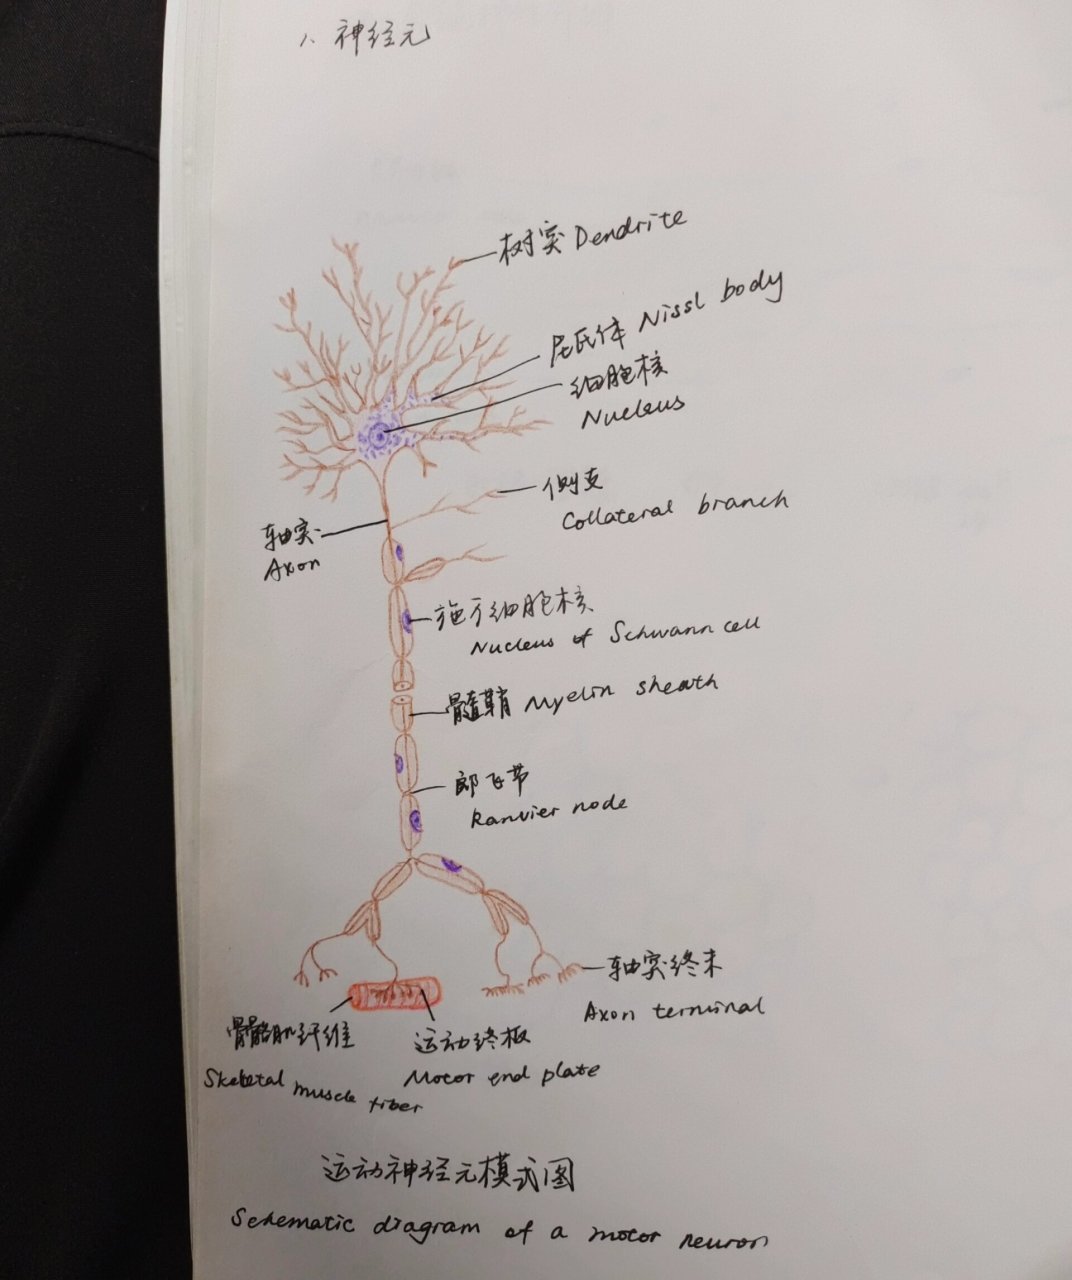 1、神经元
树突 Dendrite
尼氏体 Nissl body
细胞核
Nucleus
侧支
Collateral branch
轴突
Axon
施万细胞核
Nucleus of Schwann cell
髓鞘 Myelin sheath
郎飞节
Ranvier node
轴突终末
Axon terminal
骨骼肌纤维
Skeletal muscle fiber
运动终板
Motor end plate
运动神经元模式图
Schematic diagram of a motor neuron